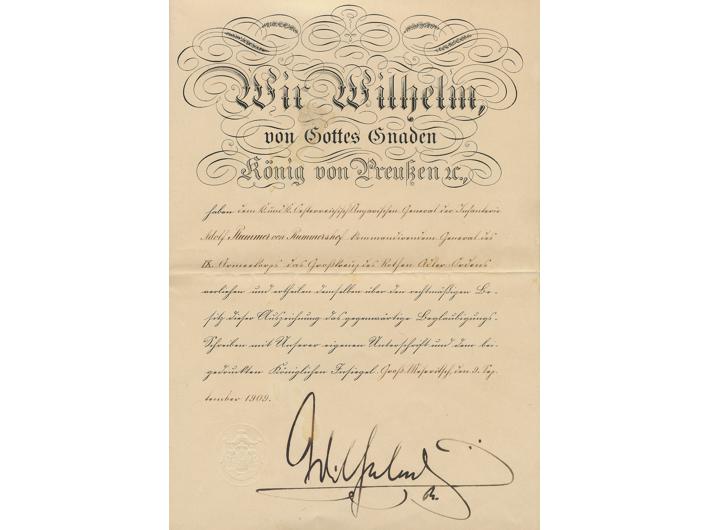 Wir Wilhelm,
von Gottes Gnaden
König von Preußen ꝛc.,
haben dem K. und K. Oesterreichisch Ungarischen General der Infanterie
Adolf Rummer von Rummershof kommandirendem General des
IX. Armeekorps das Großkreuz des Rothen Adler Ordens
verliehen und ertheilen demselben über den rechtmäßigen Be-
sitz dieser Auszeichnung das gegenwärtige Beglaubigungs-
Schreiben mit Unserer eigenen Unterschrift und dem bei-
gedruckten Königlichen Insiegel. Groß Meseritsch, den 9. Sep-
tember 1909.
Wilhelm
R.